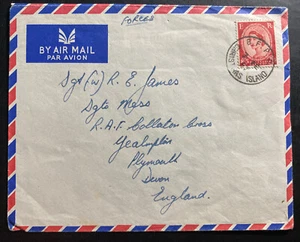 FORCES
BY AIR MAIL
PAR AVION
Sgt (W) R. E. James
Sgts Mess
R.A.F. Collaton Cross
Yealmpton
Plymouth
Devon
England.
ISLAND